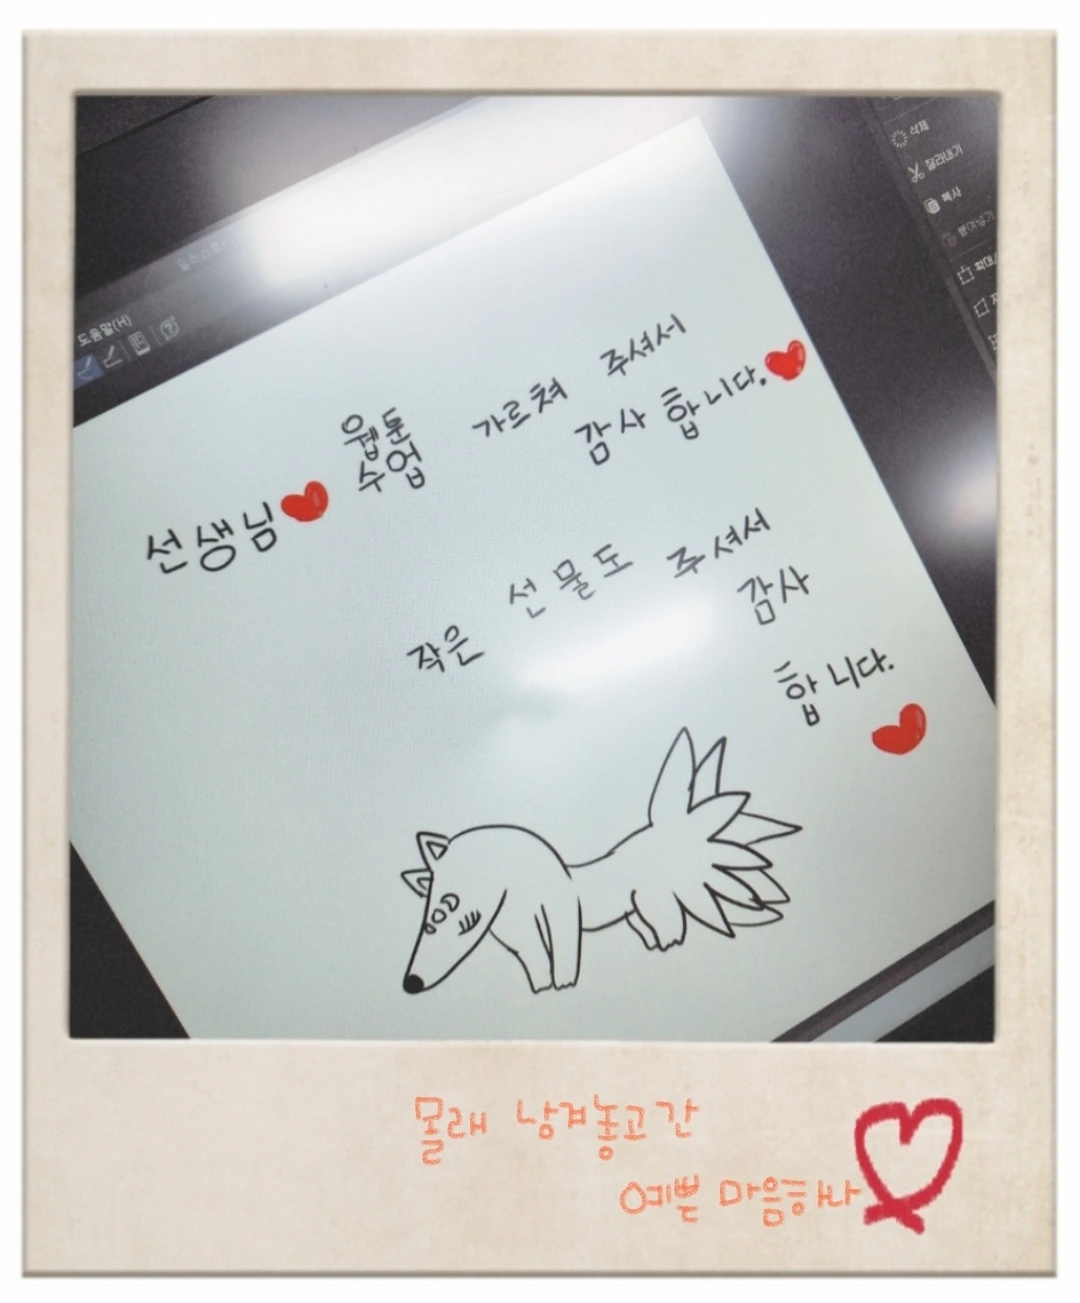 도움말(H)
삭제
잘라내기
복사
붙여넣기
선생님 웹툰 수업 가르쳐 주셔서
감사합니다.
작은 선물도 주셔서
감사
합니다.
몰래 남겨놓고간
예쁜 마음하나